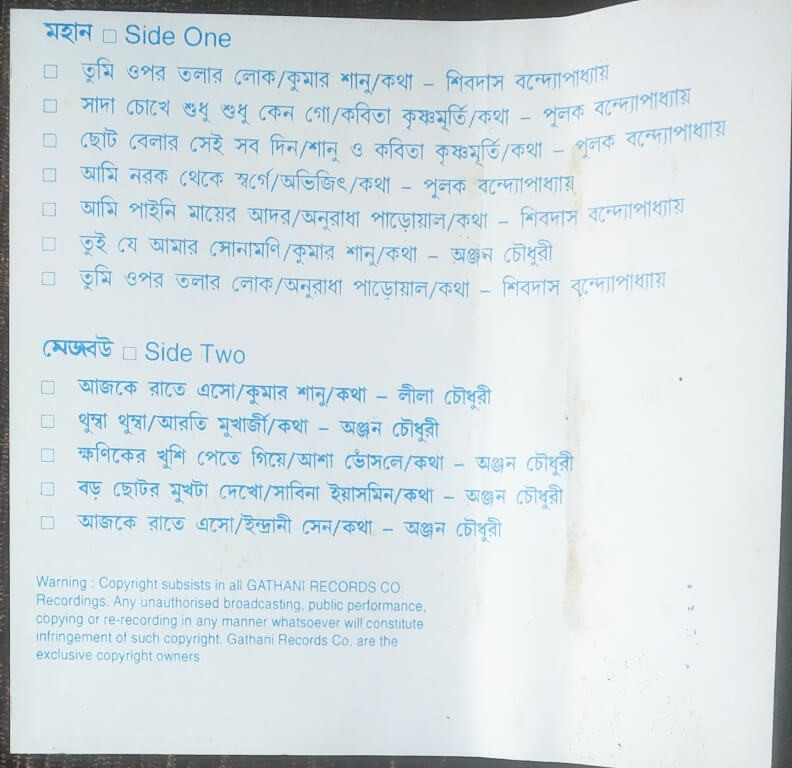 মহান □ Side One
□ তুমি ওপর তলার লোক/কুমার শানু/কথা – শিবদাস বন্দ্যোপাধ্যায়
□ সাদা চোখে শুধু শুধু কেন গো/কবিতা কৃষ্ণমূর্তি/কথা – পুলক বন্দ্যোপাধ্যায়
□ ছোট বেলার সেই সব দিন/শানু ও কবিতা কৃষ্ণমূর্তি/কথা – পুলক বন্দ্যোপাধ্যায়
□ আমি নরক থেকে স্বর্গে/অভিজিৎ/কথা – পুলক বন্দ্যোপাধ্যায়
□ আমি পাইনি মায়ের আদর/অনুরাধা পাড়োয়াল/কথা – শিবদাস বন্দ্যোপাধ্যায়
□ তুই যে আমার সোনামণি/কুমার শানু/কথা – অঞ্জন চৌধুরী
□ তুমি ওপর তলার লোক/অনুরাধা পাড়োয়াল/কথা – শিবদাস বন্দ্যোপাধ্যায়
মেজবউ □ Side Two
□ আজকে রাতে এসো/কুমার শানু/কথা – লীলা চৌধুরী
□ থুম্বা থুম্বা/আরতি মুখার্জী/কথা – অঞ্জন চৌধুরী
□ ক্ষণিকের খুশি পেতে গিয়ে/আশা ভোঁসলে/কথা – অঞ্জন চৌধুরী
□ বড় ছোটর মুখটা দেখো/সাবিনা ইয়াসমিন/কথা – অঞ্জন চৌধুরী
□ আজকে রাতে এসো/ইন্দ্রানী সেন/কথা – অঞ্জন চৌধুরী
Warning : Copyright subsists in all GATHANI RECORDS CO.
Recordings. Any unauthorised broadcasting, public performance,
copying or re-recording in any manner whatsoever will constitute
infringement of such copyright. Gathani Records Co. are the
exclusive copyright owners.